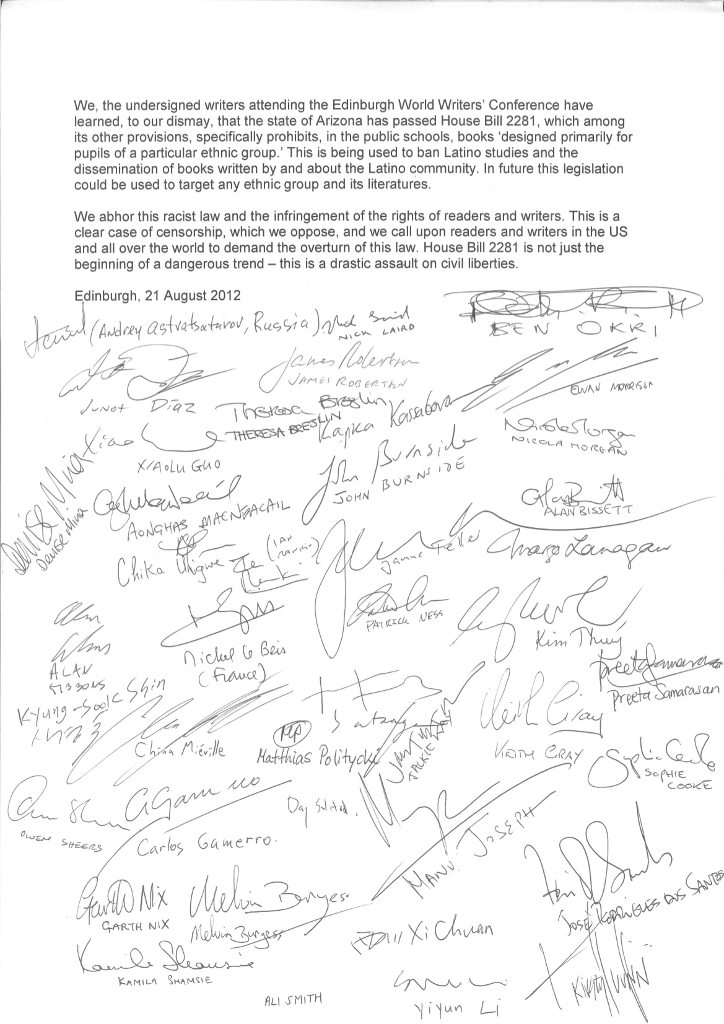 We, the undersigned writers attending the Edinburgh World Writers' Conference have
learned, to our dismay, that the state of Arizona has passed House Bill 2281, which among
its other provisions, specifically prohibits, in the public schools, books 'designed primarily for
pupils of a particular ethnic group.' This is being used to ban Latino studies and the
dissemination of books written by and about the Latino community. In future this legislation
could be used to target any ethnic group and its literatures.
We abhor this racist law and the infringement of the rights of readers and writers. This is a
clear case of censorship, which we oppose, and we call upon readers and writers in the US
and all over the world to demand the overturn of this law. House Bill 2281 is not just the
beginning of a dangerous trend – this is a drastic assault on civil liberties.
Edinburgh, 21 August 2012
(Andrey Astvatsaturov, Russia)
NICK LAIRD
BEN OKRI
James Robertson
JAMES ROBERTSON
EWAN MORRISON
JUNOT DÍAZ
Theresa Breslin
THERESA BRESLIN
Kapka Kassabova
Nicola Morgan
NICOLA MORGAN
Xiaolu
XIAOLU GUO
John Burnside
JOHN BURNSIDE
Denise Mina
Denise Mina
AONGHAS MACNEACAIL
Alan Bissett
ALAN BISSETT
Chika Unigwe
Janne Teller
Margo Lanagan
PATRICK NESS
Kim Thúy
ALAN
GIBBONS
Michel le Bris
(France)
Preeta Samarasan
Preeta Samarasan
Kyung-Sook Shin
China Miéville
Matthias Politycki
JACKIE KAY
Keith Gray
KEITH GRAY
Sophie Cooke
SOPHIE
COOKE
OWEN SHEERS
C Gamerro
Carlos Gamerro.
MANU JOSEPH
Garth Nix
GARTH NIX
Melvin Burgess
Melvin Burgess
Xi Chuan
JOSÉ RODRIGUES DOS SANTOS
Kamila Shamsie
KAMILA SHAMSIE
ALI SMITH
Yiyun Li
KIRSTY GUNN